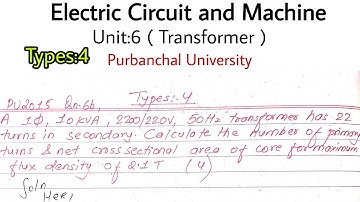 Electric Circuit and Machine
Unit:6 ( Transformer )
Types:4
Purbanchal University
PU2015 Qn.6b, Types:-4
A 1Ø, 10KVA, 2200/220V, 50Hz transformer has 22
turns in secondary. Calculate the number of primary
turns & net cross sectional area of core for maximum
flux density of 2.1T (4)
Soln
Here,